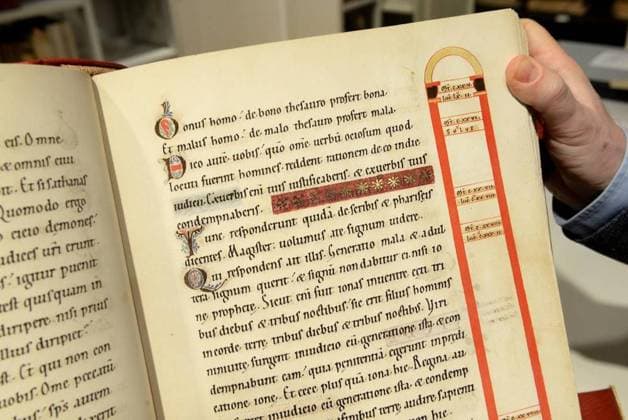 eis. Omne
& omnis ciui
Et si sathanas
Quomodo ergo
eicio demones
iudices uri erunt
igitur puenit
test quisquam in
diripere. nisi prius
illius diripiet
Et qui non con
uobis. Ome peccatu
sps autem
Bonus homo de bono thesauro profert bona.
Et malus homo de malo thesauro profert mala.
Dico aute uobis. quo ome uerbu ociosum quod
locuti fuerint homines reddent rationem de eo in die
iudicii. Ex uerbis eni tuis iustificaberis. & ex uerbis tuis
condempnaberis.
Tunc responderunt quida de scribis & phariseis
dicentes. Magister uolumus a te signum uidere.
Qui respondens ait illis. Generatio mala & adul
tera signum querit. & signu non dabitur ei nisi io
ne prophete. Sicut eni fuit ionas in uentre ceti tri
bus diebus & tribus noctibus. sic erit filius hominis
in corde terre. tribus diebus & tribus noctibus. Viri
niniuite surgent in iudicio cu generatione ista. & con
dempnabunt eam. quia penitentia egerunt in predi
catione ione. Et ecce plus qua iona hic. Regina au
stri surget in iudicio cu generatione ista & condemp
terre audire sapientia
hic.